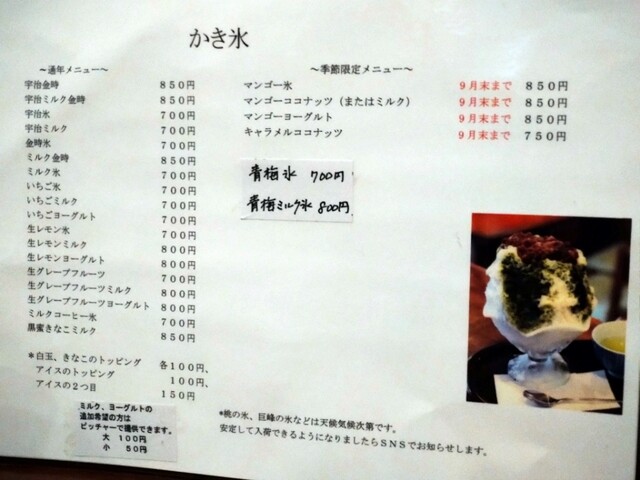 かき氷
～通年メニュー～
宇治金時 850円
宇治ミルク金時 850円
宇治氷 700円
宇治ミルク 700円
金時氷 700円
ミルク金時 850円
ミルク氷 700円
いちご氷 700円
いちごミルク 700円
いちごヨーグルト 700円
生レモン氷 700円
生レモンミルク 800円
生レモンヨーグルト 800円
生グレープフルーツ 700円
生グレープフルーツミルク 800円
生グレープフルーツヨーグルト 800円
ミルクコーヒー氷 700円
黒蜜きなこミルク 850円
＊白玉、きなこのトッピング 各100円、
アイスのトッピング 100円、
アイスの2つ目 150円
ミルク、ヨーグルトの
追加希望の方は
ピッチャーで提供できます。
大 100円
小 50円
～季節限定メニュー～
マンゴー氷 9月末まで 850円
マンゴーココナッツ（またはミルク） 9月末まで 850円
マンゴーヨーグルト 9月末まで 850円
キャラメルココナッツ 9月末まで 750円
青梅氷 700円
青梅ミルク氷 800円
*桃の氷、巨峰の氷などは天候気候次第です。
安定して入荷できるようになりましたらSNSでお知らせします。